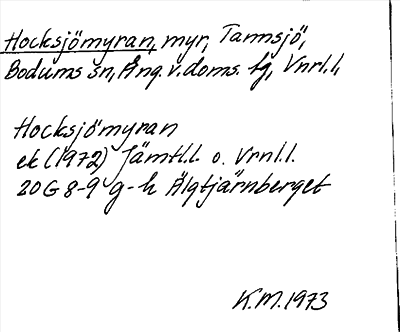 Hocksjömyran, myr, Tannsjö,
Bodums sn, Ång. v. doms. tg, Vnrl. l,
Hocksjömyran
ek (1972) Jämtl.l. o. Vrnl.l.
20G 8-9 g-h Älgtjärnberget
K.M. 1973